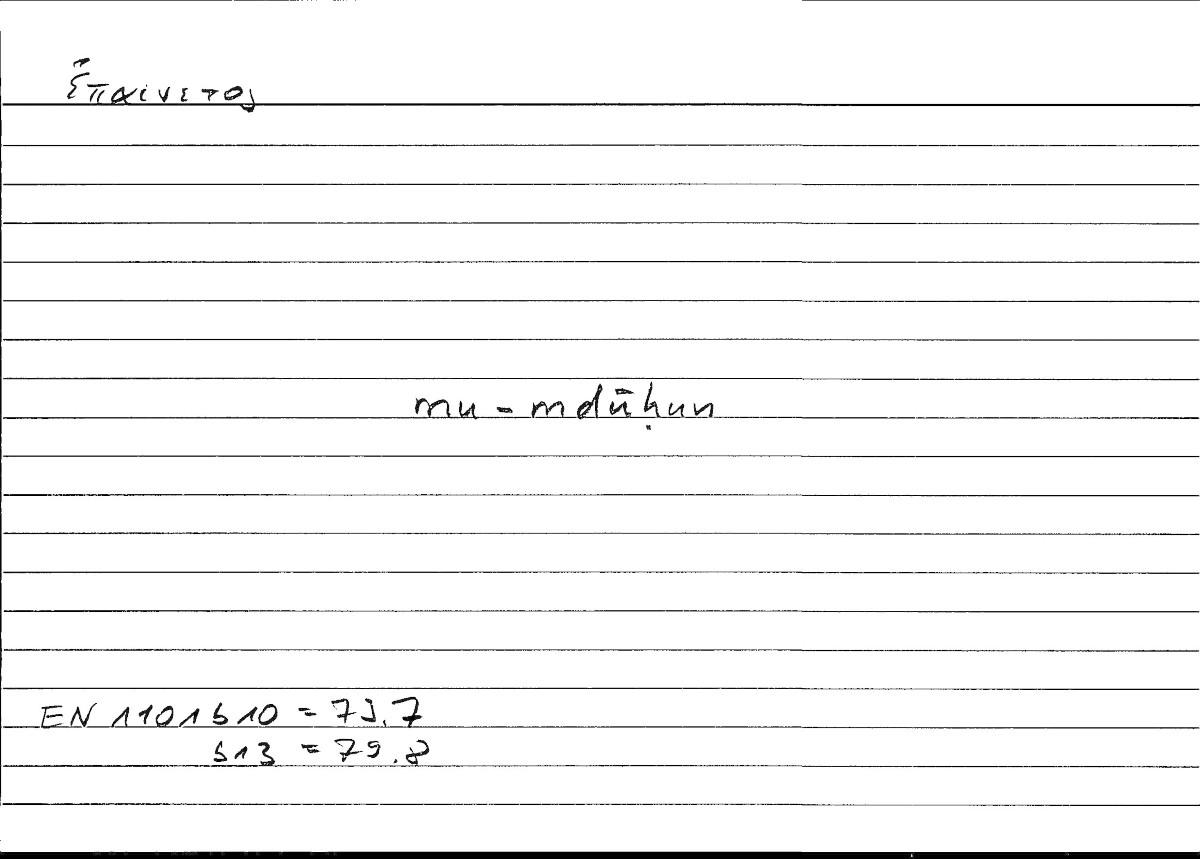 ἐπαινετος
mu - mdūḥun
EN 1101 b10 = 79.7
b13 = 79.8